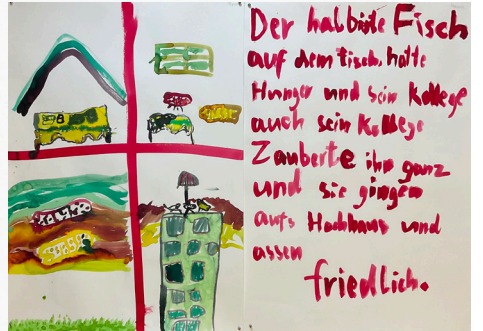 Der halbirte Fisch
auf dem Tisch, hatte
Hunger und sein Kollege
auch sein Kollege
Zauberte ihn ganz
und sie gingen
aufs Hochhaus und
assen
friedlich.